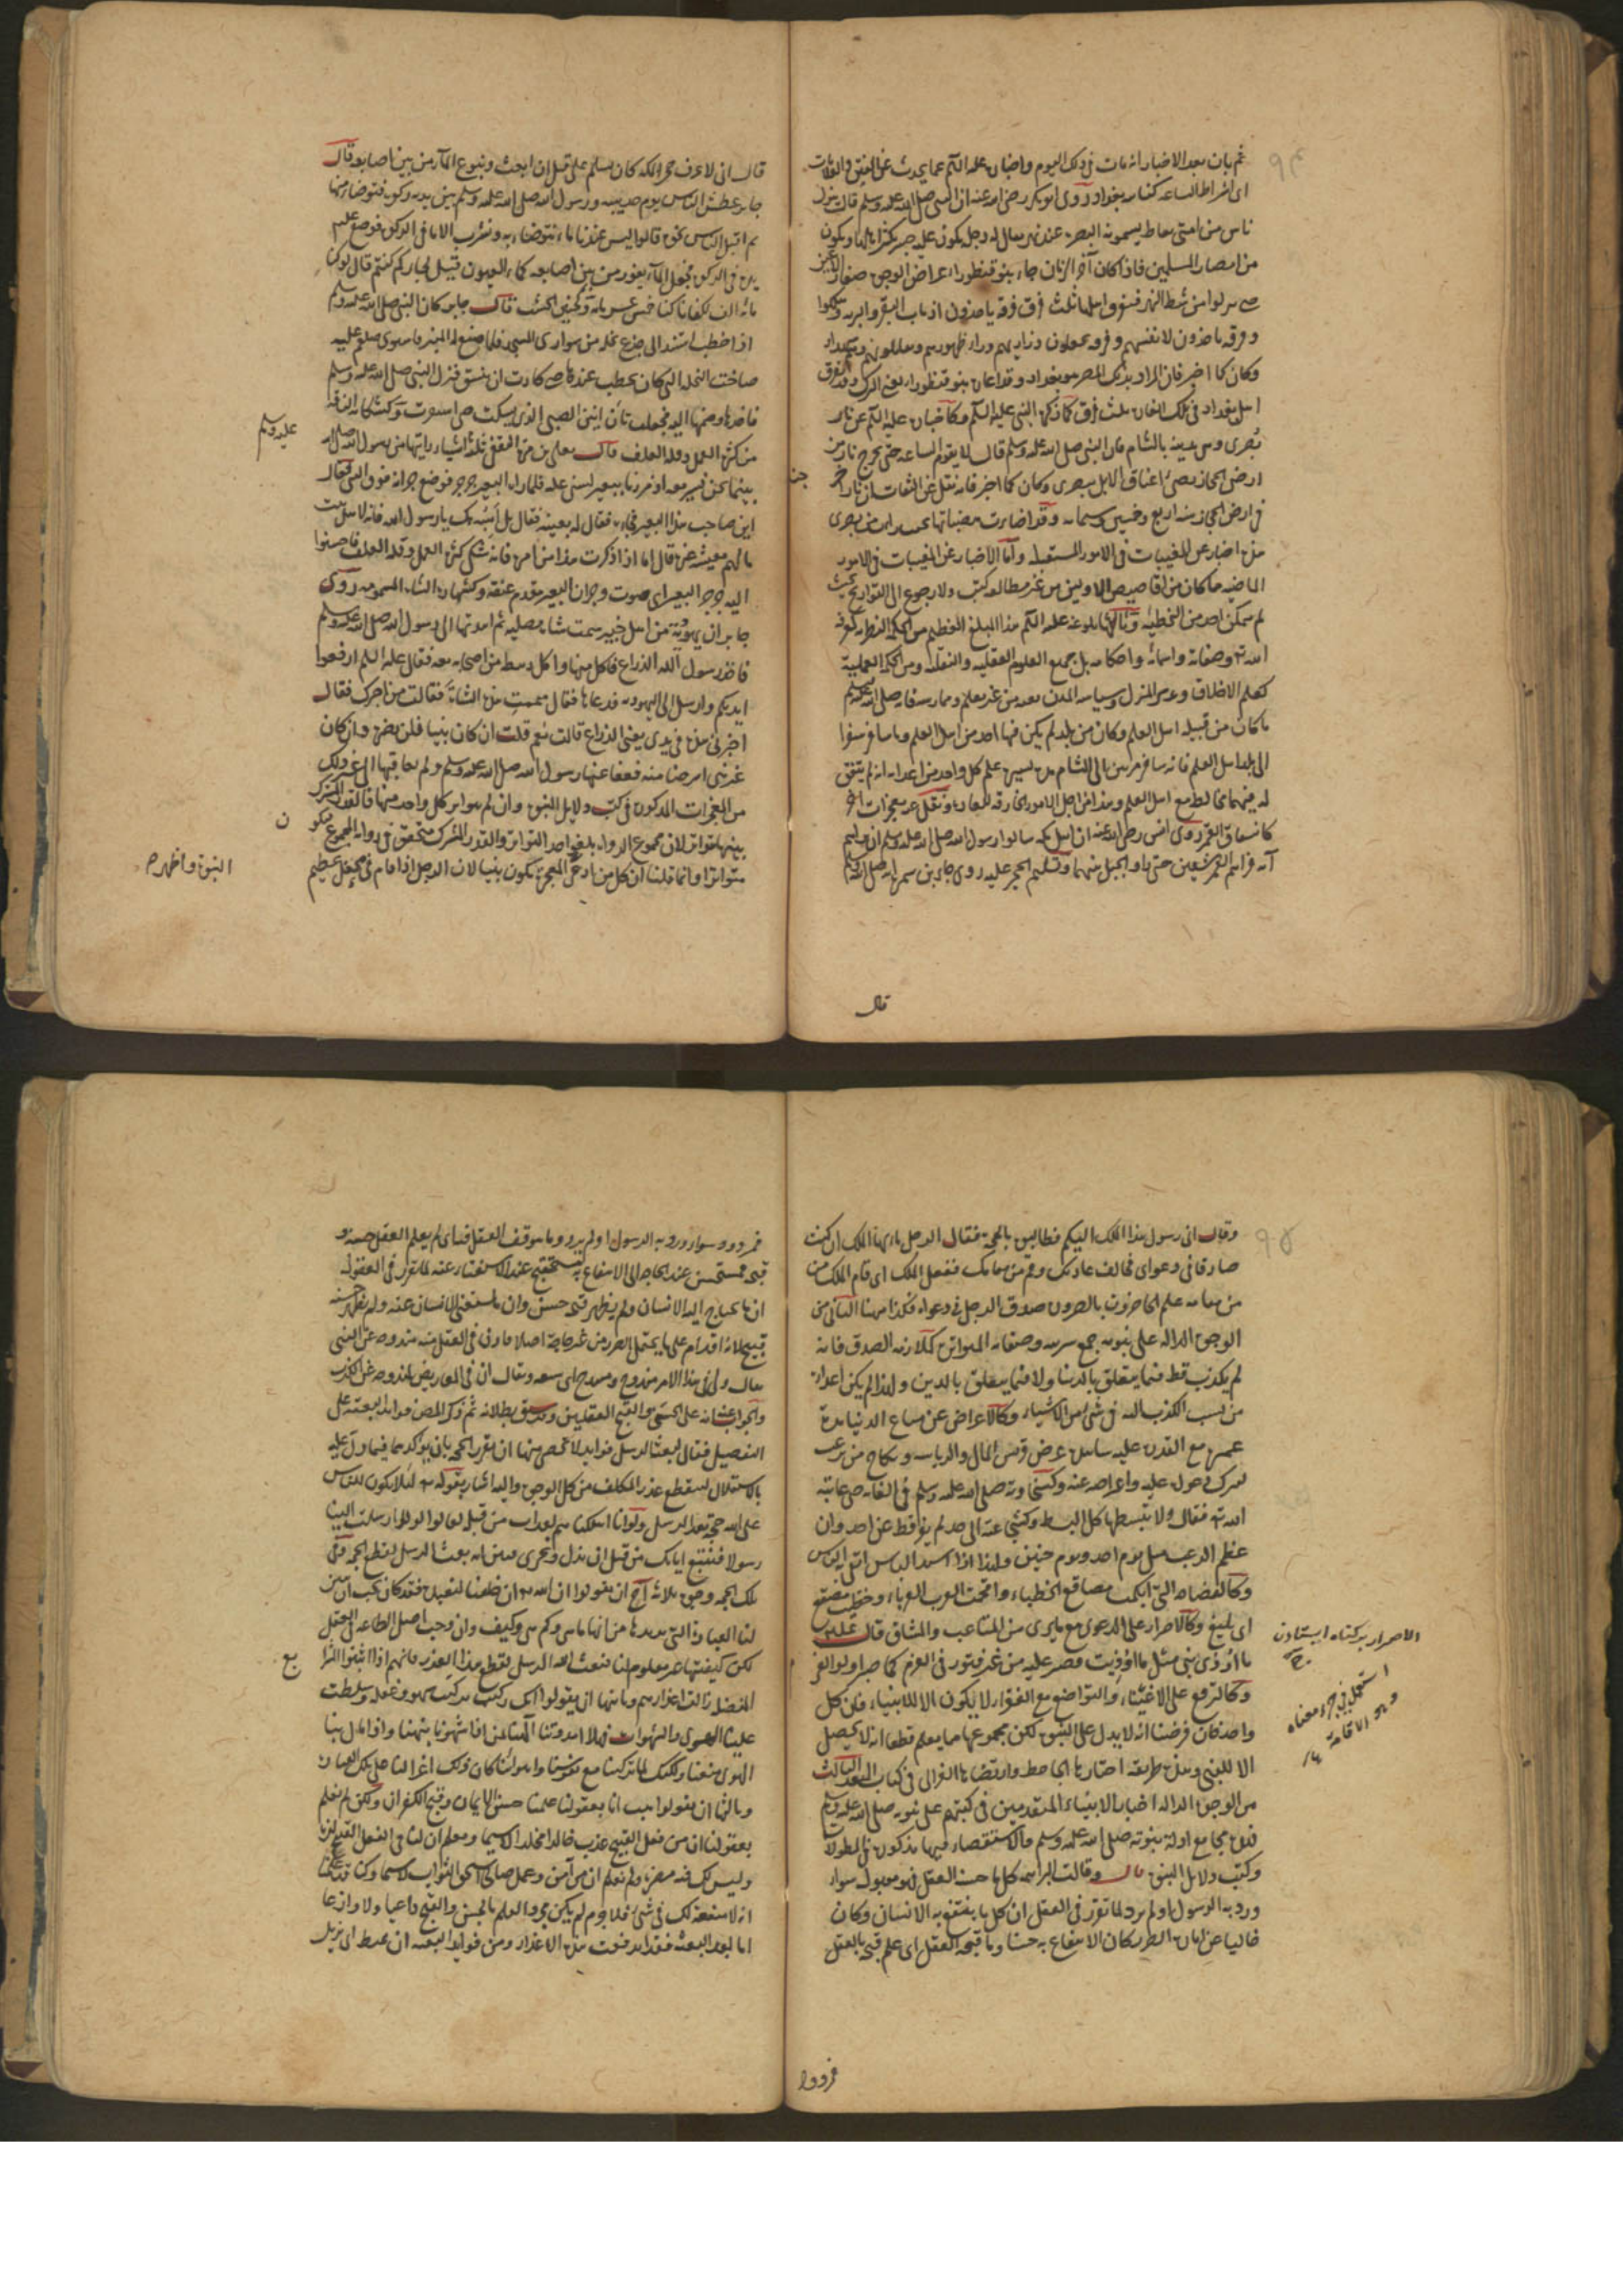 ثم بان بعد الاخبار انه مات في ذلك اليوم واخباره عليه السلم عما يحدث من الفتن والعلامات
اى اشراط الساعة كنار بغداد روى ابو بكر رضى الله عنه ان النبي صلى الله عليه وسلم قال ينزل
ناس من امتى بغايط يسمونه البصرة عند نهر يقال له دجلة يكون عليه جسر يكثر اهلها ويكون
من امصار المسلمين فاذا كان آخر الزمان جاء بنو قنطوراء عراض الوجوه صغار الاعين
حتى ينزلوا من شط النهر فيتفرق اهلها ثلث فرق فرقة ياخذون اذناب البقر والبرية وهلكوا
وفرقة ياخذون لانفسهم وفرقة يجعلون ذراريهم وراء ظهورهم ويقاتلونهم وهم شهداء
وكان كما اخبر فان المراد بذلك المصر هو بغداد وقد اعان بنو قنطوراء يعنى الترك وقد تفرق
اهل بغداد في تلك الغارة ثلث فرق كما ذكره النبي عليه السلم وكاخباره عليه السلم عن نار
بصرى وهى مدينة بالشام فان النبي صلى الله عليه وسلم قال لا يقوم الساعة حتى تخرج نار من
ارض الحجاز تضئ اعناق الابل ببصرى وكان كما اخبر فانه نقل عن الثقات ان نارا خرجت
في ارض الحجاز سنة اربع وخمسين وستمائة وقد اضاءت بضيائها بصرى
هذه اخباره عن المغيبات في الامور المستقبلة واما الاخبار عن المغيبات في الامور
الماضية ما كان من اقاصيص الاولين من غير مطالعة كتب ولا رجوع الى التواريخ بحيث
لم يتمكن احد من التخطئة وثالثها بلوغه عليه السلم هذا المبلغ العظيم من الحكمة النظرية كمعرفة
الله تع وصفاته واسمائه واحكامه بل جميع العلوم العقلية والنقلية ومن الحكمة العملية
كعلم الاخلاق وتدبير المنزل وسياسة المدن بعده من غير تعلم وممارسة فانه صلى الله عليه وسلم
ما كان من قبيلة اهل العلم وكان من بلد لم يكن فيها احد من اهل العلم وما سافر سفرا
الى بلد اهل العلم فانه سافر مرتين الى الشام مدة يسيرة علم كل واحد من اعدائه انه لم يتفق
له فيهما مخالطة مع اهل العلم وهذا من اجل الامور الخارقة للعادة ونقل عنه معجزات اخر
كانشقاق القمر روى انس رضى الله عنه ان اهل مكة سالوا رسول الله صلى الله عليه وسلم ان يريهم
آية فراهم القمر شقين حتى راوا الجبل بينهما وتسليم الحجر عليه روى جابر بن سمرة انه صلى الله عليه وسلم
قال
قال انى لاعرف حجرا بمكة كان يسلم على قبل ان ابعث ونبوع الماء من بين اصابعه قال
جابر عطش الناس يوم حديبية ورسول الله صلى الله عليه وسلم بين يديه ركوة فتوضأ منها
ثم اقبل الناس نحوه قالوا ليس عندنا ماء نتوضاء به ونشرب الا ما في الركوة فوضع عليه السلم
يده في الركوة فجعل الماء يفور من بين اصابعه كماء العيون قيل لجابر كم كنتم قال لو كنا
مائة الف لكفانا كنا خمس عشر مائة وكحنين الخشبة قال جابر كان النبي صلى الله عليه وسلم
اذا خطب استند الى جذع نخلة من سوارى المسجد فلما صنع له المنبر فاستوى صلعم عليه
صاحت النخلة التى كان يخطب عندها حتى كادت ان ينشق فنزل النبي صلى الله عليه وسلم
فاخذها وضمها اليه فجعلت تان انين الصبى الذى يسكت حتى استقرت وكشكاية الناقة
من كثرة العمل وقلة العلف قال يعلى بن مرة الثقفى ثلثة اشياء رايتها من رسول الله صلى الله
عليه وسلم
بينما نحن نسير معه اذ مررنا ببعير يسنى عليه فلما راه البعير جرجر فوضع جرانه فوقف النبي فقال
اين صاحب هذا البعير فجاءه فقال له بعنيه فقال بل نهبه لك يا رسول الله فانه لاهل بيت
ما لهم معيشة غيره قال اما اذا ذكرت هذا من امره فانه شكى كثرة العمل وقلة العلف فاحسنوا
اليه جرجر البعير اى صوت وجران البعير مقدم عنقه وكشهادة الشاة المسمومة روى
جابر ان يهودية من اهل خيبر سمت شاة مصلية ثم اهدتها الى رسول الله صلى الله عليه وسلم
فاخذ رسول الله الذراع فاكل منها واكل رهط من اصحابه معه فقال عليه السلم ارفعوا
ايديكم وارسل الى اليهودية فدعاها فقال سممت هذه الشاة فقالت من اخبرك فقال
اخبرتنى هذه في يدى يعنى الذراع قالت نعم قلت ان كان نبيا فلن يضره وان كان
غير نبى استرحنا منه فعفا عنها رسول الله صلى الله عليه وسلم ولم يعاقبها الى غير ذلك
من المعجزات المذكورة في كتب دلايل النبوة وان لم يتواتر كل واحد منها فالقدر المشترك
بينها تواتر لان مجموع الرواة بلغوا حد التواتر والقدر المشترك متحقق في رواية المجموع فيكون
متواترا وانما قلنا ان كل من ادعى المعجزة يكون نبيا لان الرجل اذا قام في محفل عظيم
النبوة واظهر ه
وقال انى رسول هذا الملك اليكم فطالبوه بالحجة فقال الرجل يا ايها الملك ان كنت
صادقا في دعواى فخالف عادتك وقم من مقامك ففعل الملك اى قام الملك من
من مقامه علم الحاضرون بالضرورة صدق الرجل في دعواه فكذا هنا الثانى من
الوجوه الدالة على نبوته جميع سيرته وصفاته المتواترة كملازمة الصدق فانه
لم يكذب قط فيما يتعلق بالدنيا ولا فيما يتعلق بالدين ولهذا لم يكن اعداؤه
من نسب الكذب اليه في شئ من الاشياء وكالاعراض عن متاع الدنيا مدة
عمره مع القدرة عليه عرض قريش المال والرياسة ونكاح من يرغب
لترك دعواه عليه واعراضه عنه وكسخاوته صلى الله عليه وسلم في الغاية حتى عاتبه
الله تع فقال ولا تبسطها كل البسط وكشجاعته الى حد لم يفر قط عن احد وان
عظم الرعب مثل يوم احد ويوم حنين ولهذا اذا اشتد الباس اتقى به الناس
وكالفصاحة التى ابكمت مصاقع الخطباء وافحمت العرب العرباء وخطيب مصقع
اى بليغ وكالاصرار على الدعوى مع ما يرى من المتاعب والمشاق قال عليه السلم
ما اوذى نبى مثل ما اوذيت فصبر عليه من غير فتور في العزم كما صبر اولو العزم
وكالترفع على الاغنياء والتواضع مع الفقراء لا يكون الا للانبياء فان كل
واحد فان فرضنا انه لا يدل على النبوة لكن مجموعها مما يعلم قطعا انه لا يحصل
الا للنبى وهذه طريقة اختارها الجاحظ وارتضاها الغزالى في كتاب المنقذ الثالث
من الوجوه الدالة اخبار الانبياء المتقدمين في كتبهم على نبوته صلى الله عليه وسلم
فهذه مجامع ادلة نبوته صلى الله عليه وسلم والاستقصاء فيها مذكورة في المطولات
وكتب دلائل النبوة قال وقالت البراهمة كل ما حسنه العقل فهو مقبول سواء
ورد به الرسول او لم يرد لما تقرر في العقل ان كل ما ينتفع به الانسان وكان
خاليا عن امارة الضرر كان الانتفاع به حسنا وما قبحه العقل اى علم قبحه بالعقل
فمردود
الاصرار بركناه ايستادن
استعمل في جزء معناه
وهو الاقامة
فمردود سواء ورد به الرسول او لم يرد وما توقف العقل فيه اى لم يعلم العقل حسنه و
قبحه فمستحسن عند الحاجة الى الانتفاع به مستقبح عند الاستغناء عنه لما تقرر في العقول
ان ما يحتاج اليه الانسان ولم يظهر قبحه حسن وان ما استغنى الانسان عنه ولم يظهر حسنه
قبيح لانه اقدام على ما يحتمل الضرر من غير حاجة اصلا فاذن في العقل مندوحة عن النبى
يقال ولى في هذا الامر مندوح ومندوحة اى سعة ويقال ان في المعاريض لمندوحة عن الكذب
والجواب انه على الحسن والقبح العقليين وقد سبق بطلانه ثم ذكر المص فوايد البعثة على
التفصيل فقال لبعثة الرسل فوايد لا تحصى منها ان يقرر الحجة بان يؤكد بها فيما دل عليه
بالاستقلال ليقطع عذر المكلف من كل الوجوه واليه اشار بقوله تع لئلا يكون للناس
على الله حجة بعد الرسل ولو انا اهلكناهم بعذاب من قبله لقالوا لولا ارسلت الينا
رسولا فنتبع اياتك من قبل ان نذل ونخزى فبين انه بعث الرسل لقطع الحجة وفى
تلك الحجة وجوه ثلاثة آ ان يقولوا ان الله تع ان خلقنا لنعبده فقد كان يجب ان يبين
لنا العبادة التى يريدها منا انها ما هى وكم هى وكيف وان وجب اصل الطاعة في العقل
لكن كيفيتها غير معلوم لنا فبعث الله الرسل لقطع هذا العذر فانهم اذا اثبتوا الشرايع
المفصلة زالت اعذارهم وثانيها ان يقولوا انك ركبتنا تركيب سهو وغفلة وسلطت
علينا الهوى والشهوات فهلا امددتنا الهنا بمن اذا سهونا نبهنا واذا مال بنا
الهوى منعنا ولكنك لما تركتنا مع نفوسنا واهوائنا كان ذلك اغراء لنا على تلك القبايح
وثالثها ان يقولوا هب انا بعقولنا علمنا حسن الايمان وقبح الكفران ولكن لم نعلم
بعقولنا ان من فعل القبيح عذب خالدا مخلدا لا سيما ونعلم ان لنا في الفعل القبيح لذة
وليس لك فيه مضرة ولم نعلم ان من آمن وعمل صالحا استحق الثواب لا سيما وكنا قد علمنا
انه لا منفعة لك في شئ فلا جرم لم يكن مجرد العلم بالحسن والقبح داعيا ولا وازعا
اما بعد البعثة فقد اندفعت هذه الاعذار ومن فوايد البعثة ان يميط اى يزيل